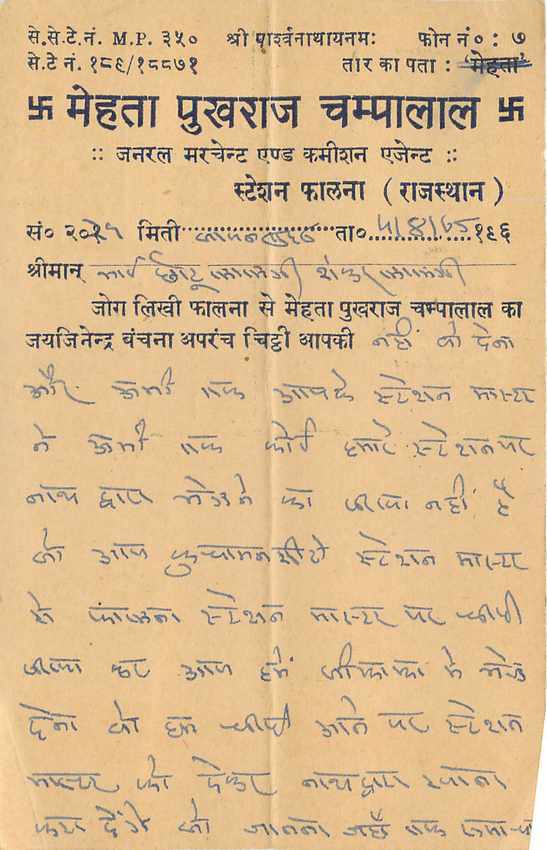 से.से.टे.नं. M.P. ३५० श्री पार्श्वनाथायनमः फोन नं० : ७
से.टे नं. १८९/१८८७१ तार का पता : 'मेहता'
卐 मेहता पुखराज चम्पालाल 卐
:: जनरल मरचेन्ट एण्ड कमीशन एजेन्ट ::
स्टेशन फालना ( राजस्थान )
सं० २०२५ मिती ता० १९६
श्रीमान्
जोग लिखी फालना से मेहता पुखराज चम्पालाल का
जयजिनेन्द्र बंचना अपरंच चिट्ठी आपकी नहीं सो देना
और अभी तक आपके स्टेशन मास्टर
ने अभी तक कोई हमारे स्टेशन पर
नाथ द्वारा भेजने का नहीं है
सो आप कुचामन सीटी स्टेशन मास्टर
से फालना स्टेशन मास्टर पर
कर आप हमें लीफाफा में भेज
देना सो हम आने पर स्टेशन
मास्टर को देकर नाथद्वारा रवाना
करा देंगे सो जानना तक